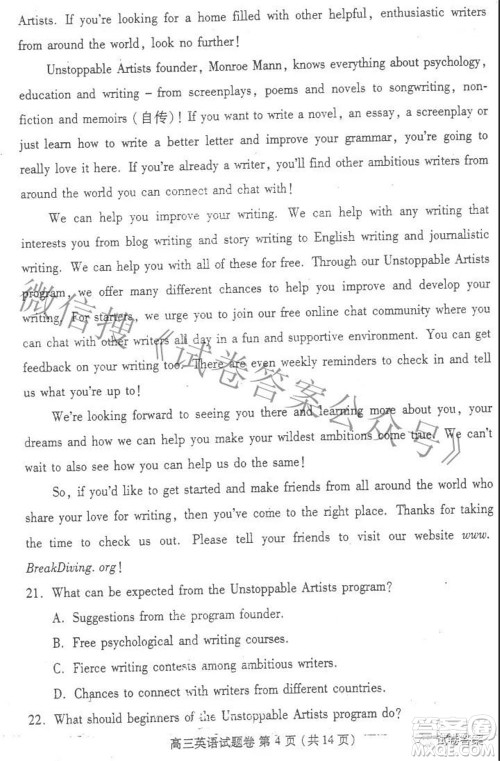 Artists. If you're looking for a home filled with other helpful, enthusiastic writers
from around the world, look no further!
Unstoppable Artists founder, Monroe Mann, knows everything about psychology,
education and writing – from screenplays, poems and novels to songwriting, non-
fiction and memoirs (自传)! If you want to write a novel, an essay, a screenplay or
just learn how to write a better letter and improve your grammar, you're going to
really love it here. If you're already a writer, you'll find other ambitious writers from
around the world you can connect and chat with!
We can help you improve your writing. We can help with any writing that
interests you from blog writing and story writing to English writing and journalistic
writing. We can help you with all of these for free. Through our Unstoppable Artists
program, we offer many different chances to help you improve and develop your
writing. For starters, we urge you to join our free online chat community where you
can chat with other writers all day in a fun and supportive environment. You can get
feedback on your writing too. There are even weekly reminders to check in and tell
us what you're up to!
We're looking forward to seeing you there and learning more about you, your
dreams and how we can help you make your wildest ambitions come true! We can't
wait to also see how you can help us do the same!
So, if you'd like to get started and make friends from all around the world who
share your love for writing, then you've come to the right place. Thanks for taking
the time to check us out. Please tell your friends to visit our website www.
BreakDiving. org!
21. What can be expected from the Unstoppable Artists program?
A. Suggestions from the program founder.
B. Free psychological and writing courses.
C. Fierce writing contests among ambitious writers.
D. Chances to connect with writers from different countries.
22. What should beginners of the Unstoppable Artists program do?
高三英语试题卷 第 4 页 (共 14 页)
微信搜《试卷答案公众号》
试卷答案